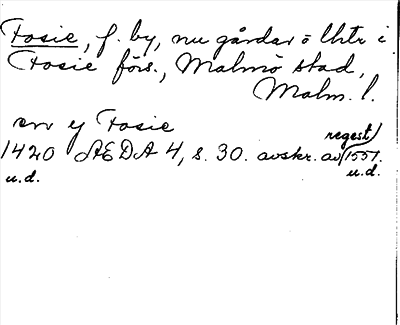 Fosie, f. by, nu gårdar o lhtr i
Fosie förs., Malmö stad,
Malm. l.
en y Fosie
regest)
1420 AEDA 4, s. 30. avskr. av 1551.
u.d. u.d.